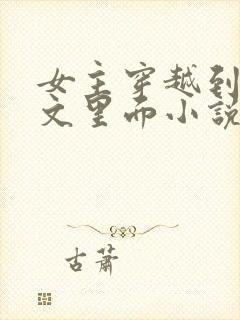 女主穿越到
文里而小說
古蕭